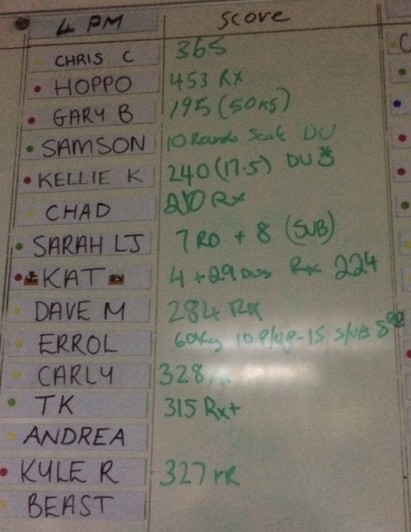 4 PM score
CHRIS C 365
HOPPO 453 Rx
GARY B 195 (50KG)
SAMSON 10 Rounds Scale DU
KELLIE K 240 (17.5) DU
CHAD 210 Rx
SARAH LJ 7 RD + 8 (SUB)
KAT 4 + 29 DUs Rx 224
DAVE M 284 Rx
ERROL 60Kg 10 P/up - 15 S/UB
CARLY 328
TK 315 Rx+
ANDREA
KYLE R 327
BEAST
C